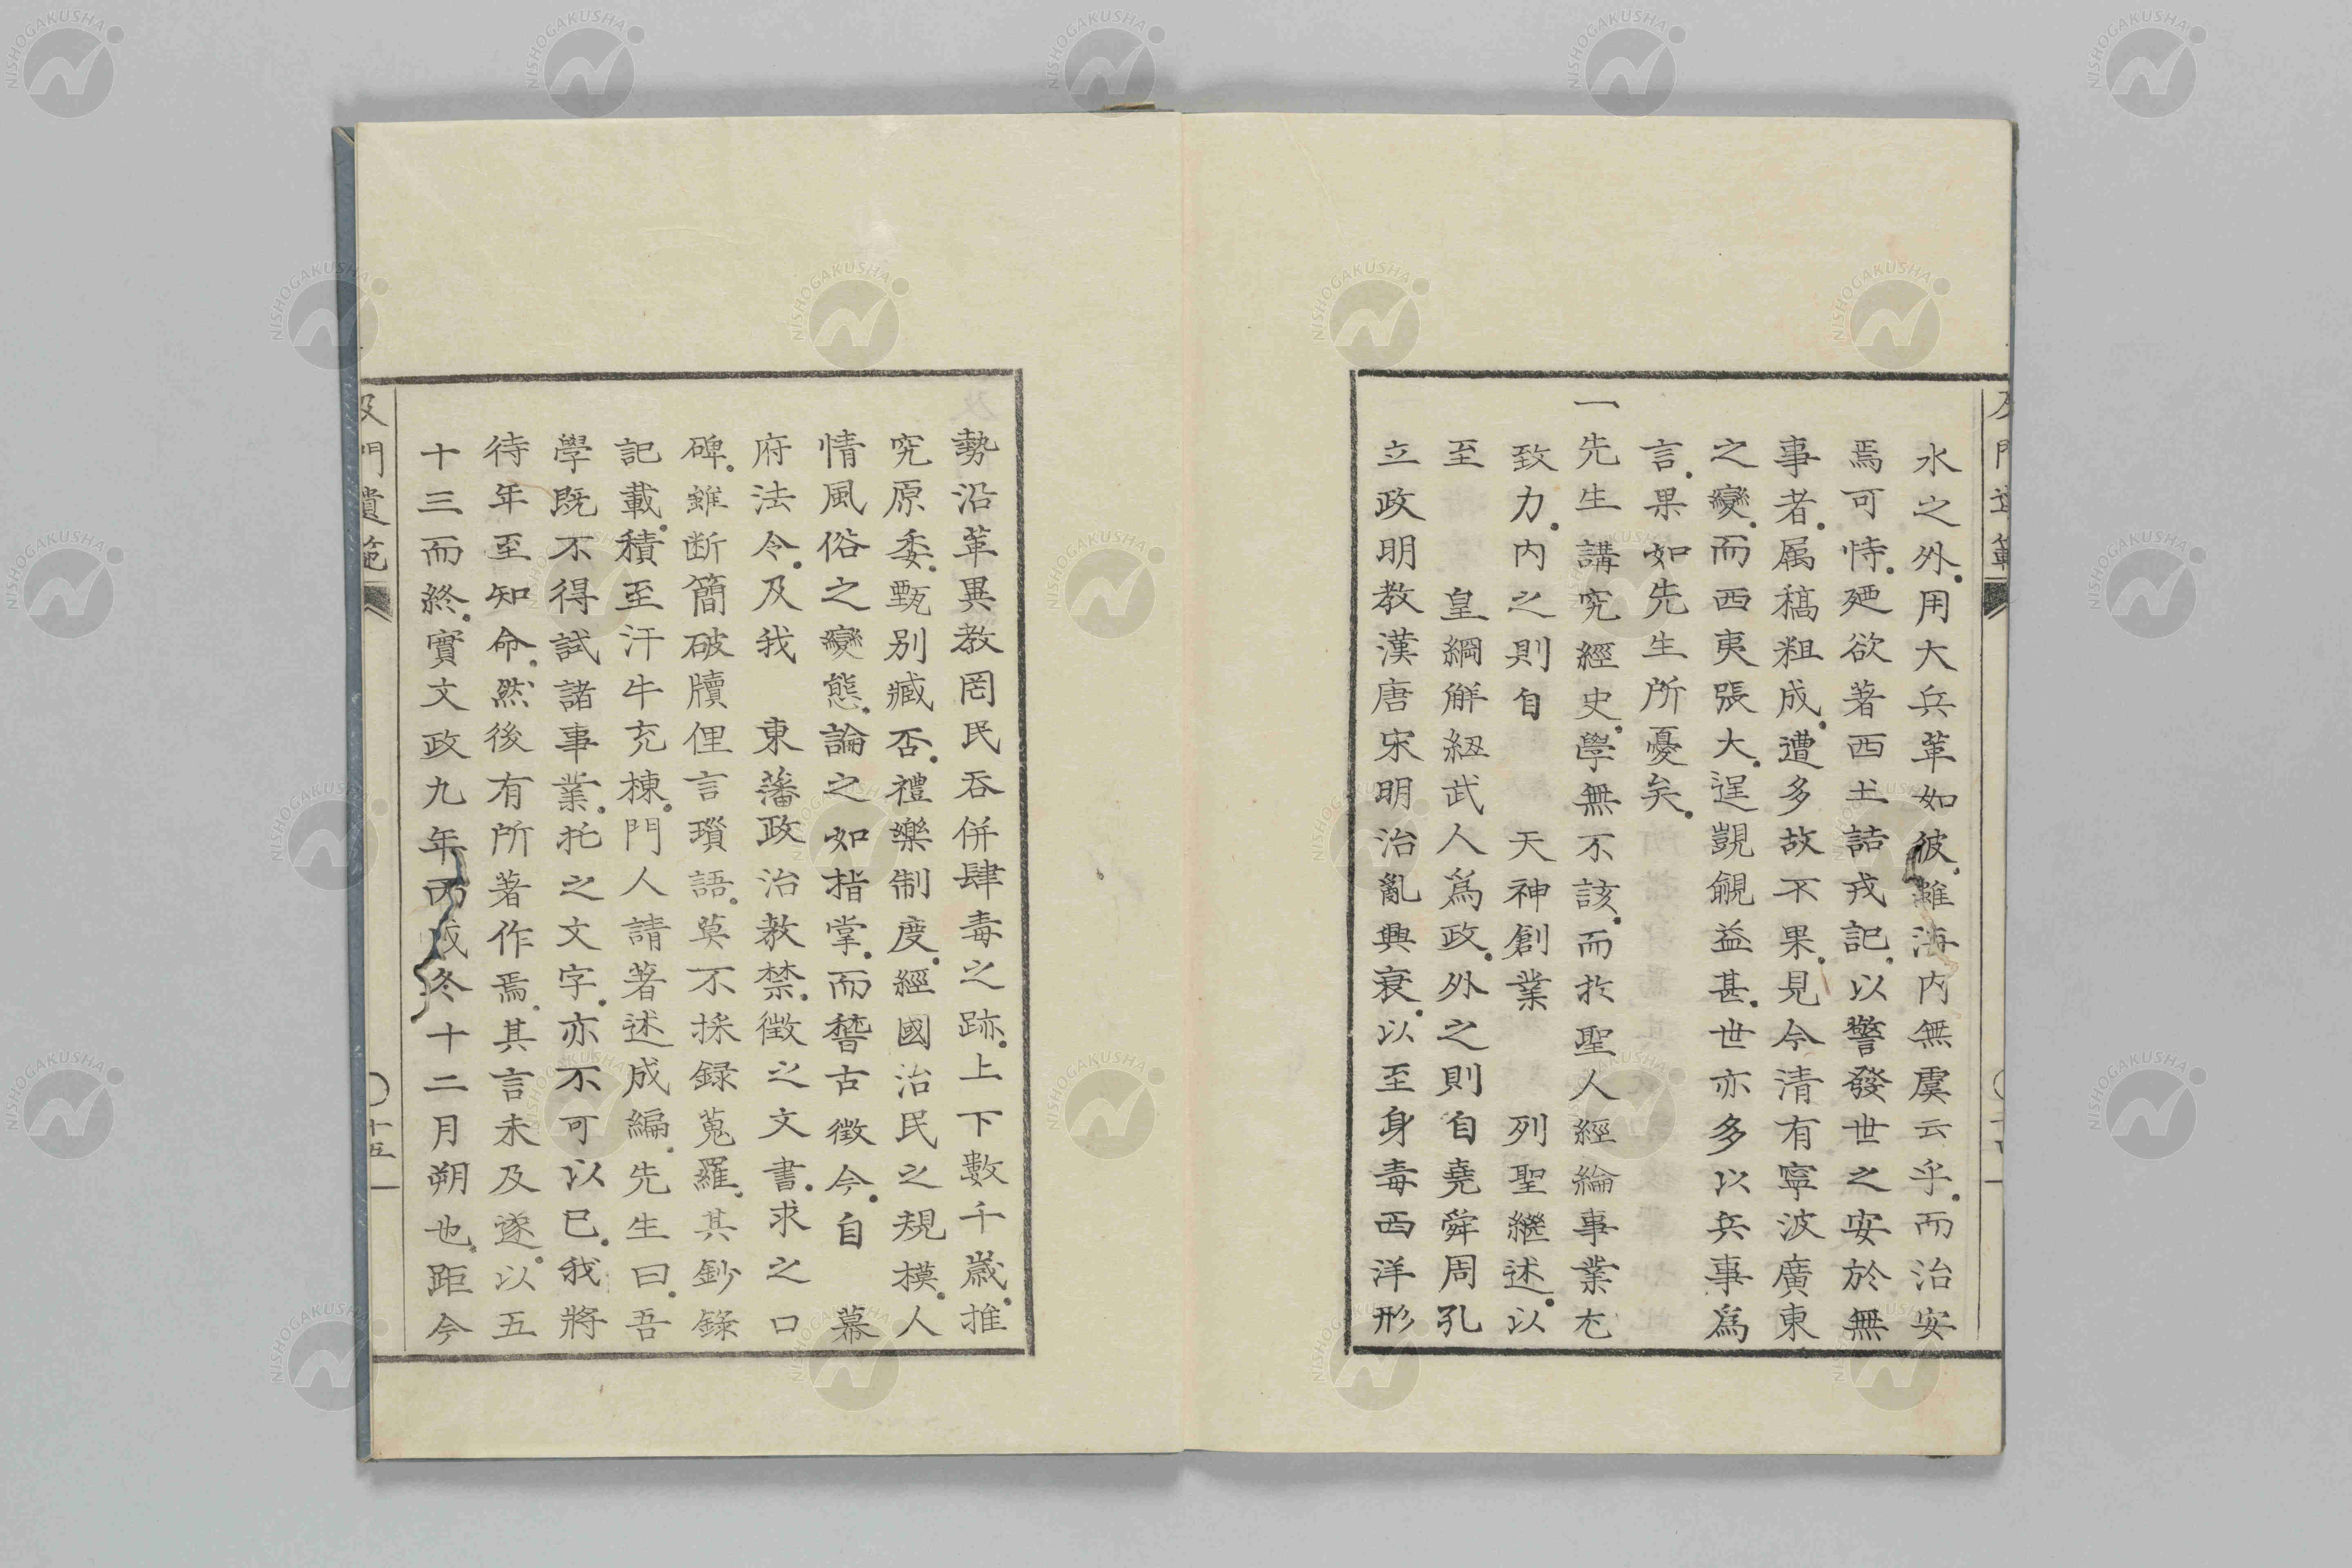 水之外。用大兵革如彼。雖海内無虞云乎。而治安
焉可恃。廼欲著西土詰戎記。以警發世之安於無
事者。属稿粗成。遭多故不果。見今清有寧波廣東
之變。而西夷張大。逞覬覦益甚。世亦多以兵事爲
言。果如先生所憂矣。
一先生講究經史。學無不該。而扵聖人經綸事業尤
致力。内之則自 天神創業 列聖繼述。以
至 皇綱觧紐武人爲政。外之則自堯舜周孔
立政明教漢唐宋明治亂興衰。以至身毒西洋形
勢沿革異教罔民呑併肆毒之跡。上下數千歳。推
究原委。甄別臧否。禮樂制度。經國治民之規模。人
情風俗之變態。論之如指掌。而稽古徴今。自 幕
府法令。及我 東藩政治教禁。徴之文書。求之口
碑。雖断簡破牘俚言瑣語。莫不採録蒐羅。其鈔錄
記載。積至汗牛充棟。門人請著述成編。先生曰。吾
學既不得試諸事業。托之文字。亦不可以已。我將
待年至知命。然後有所著作焉。其言未及遂。以五
十三而終。實文政九年丙戌冬十二月朔也。距今
及門遺範
十五